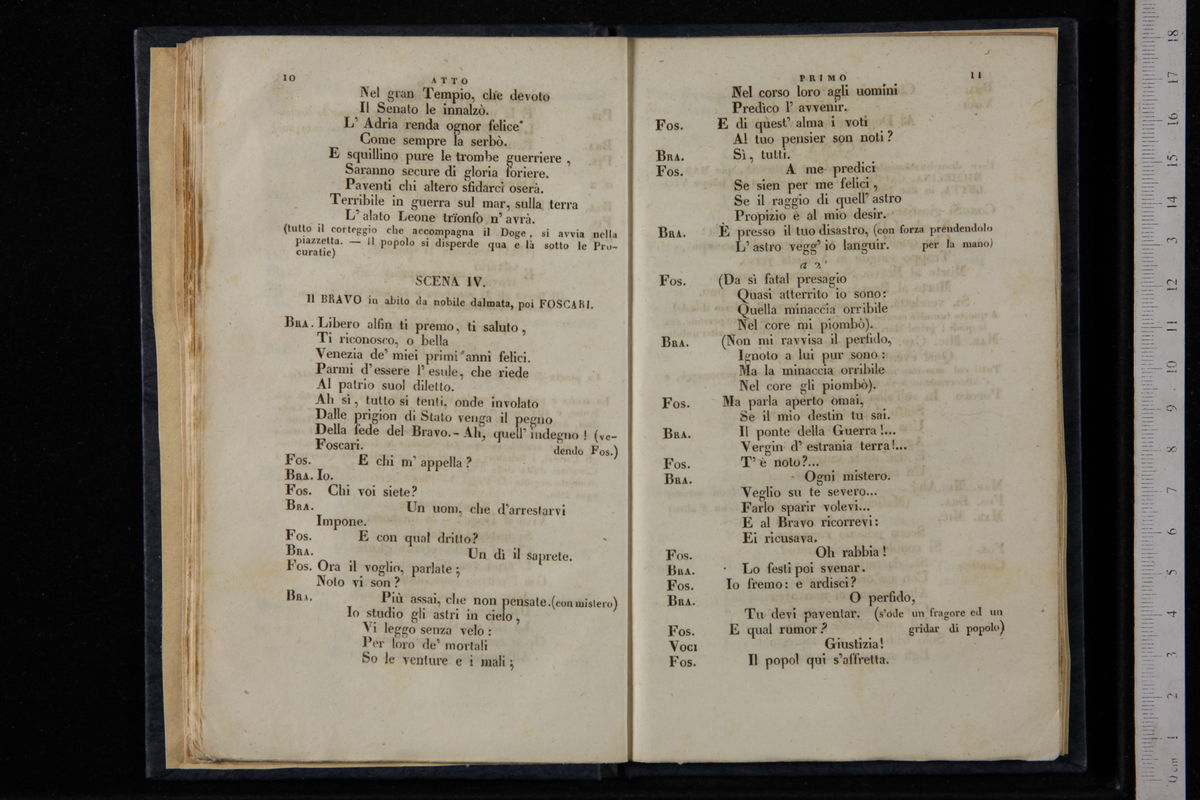 10
ATTO
Nel gran Tempio, che devoto
Il Senato le innalzò.
L' Adria renda ognor felice
Come sempre la serbò.
E squillino pure le trombe guerriere ,
Saranno secure di gloria foriere.
Paventi chi altero sfidarci oserà.
Terribile in guerra sul mar, sulla terra
L' alato Leone trïonfo n' avrà.
(tutto il corteggio che accompagna il Doge , si avvia nella
piazzetta. — Il popolo si disperde qua e là sotto le Pro-
curatie)
SCENA IV.
Il BRAVO in abito da nobile dalmata, poi FOSCARI.
BRA. Libero alfin ti premo, ti saluto ,
Ti riconosco, o bella
Venezia de' miei primi anni felici.
Parmi d'essere l' esule, che riede
Al patrio suol diletto.
Ah sì, tutto si tenti, onde involato
Dalle prigion di Stato venga il pegno
Della fede del Bravo. - Ah, quell' indegno ! (ve-
Foscari. dendo Fos.)
Fos. E chi m' appella ?
BRA. Io.
Fos. Chi voi siete?
BRA. Un uom, che d'arrestarvi
Impone.
Fos. E con qual dritto?
BRA. Un dì il saprete.
Fos. Ora il voglio, parlate ;
Noto vi son ?
BRA. Più assai, che non pensate. (con mistero)
Io studio gli astri in cielo ,
Vi leggo senza velo :
Per loro de' mortali
So le venture e i mali ;
PRIMO
11
Nel corso loro agli uomini
Predico l' avvenir.
Fos. E di quest' alma i voti
Al tuo pensier son noti ?
BRA. Sì , tutti.
Fos. A me predici
Se sien per me felici ,
Se il raggio di quell' astro
Propizio è al mio desir.
BRA. È presso il tuo disastro, (con forza prendendolo
L' astro vegg' io languir. per la mano)
a 2
Fos. (Da sì fatal presagio
Quasi atterrito io sono:
Quella minaccia orribile
Nel core mi piombò).
BRA. (Non mi ravvisa il perfido,
Ignoto a lui pur sono :
Ma la minaccia orribile
Nel core gli piombò).
Fos. Ma parla aperto omai,
Se il mio destin tu sai.
BRA. Il ponte della Guerra !...
Vergin d' estrania terra !...
Fos. T' è noto ?...
BRA. Ogni mistero.
Veglio su te severo...
Farlo sparir volevi...
E al Bravo ricorrevi :
Ei ricusava.
Fos. Oh rabbia !
BRA. Lo festi poi svenar.
Fos. Io fremo: e ardisci?
BRA. O perfido,
Tu devi paventar. (s'ode un fragore ed un
Fos. E qual rumor ? gridar di popolo)
VOCI Giustizia!
Fos. Il popol qui s'affretta.
0 cm 1 2 3 4 5 6 7 8 9 10 11 12 13 14 15 16 17 18